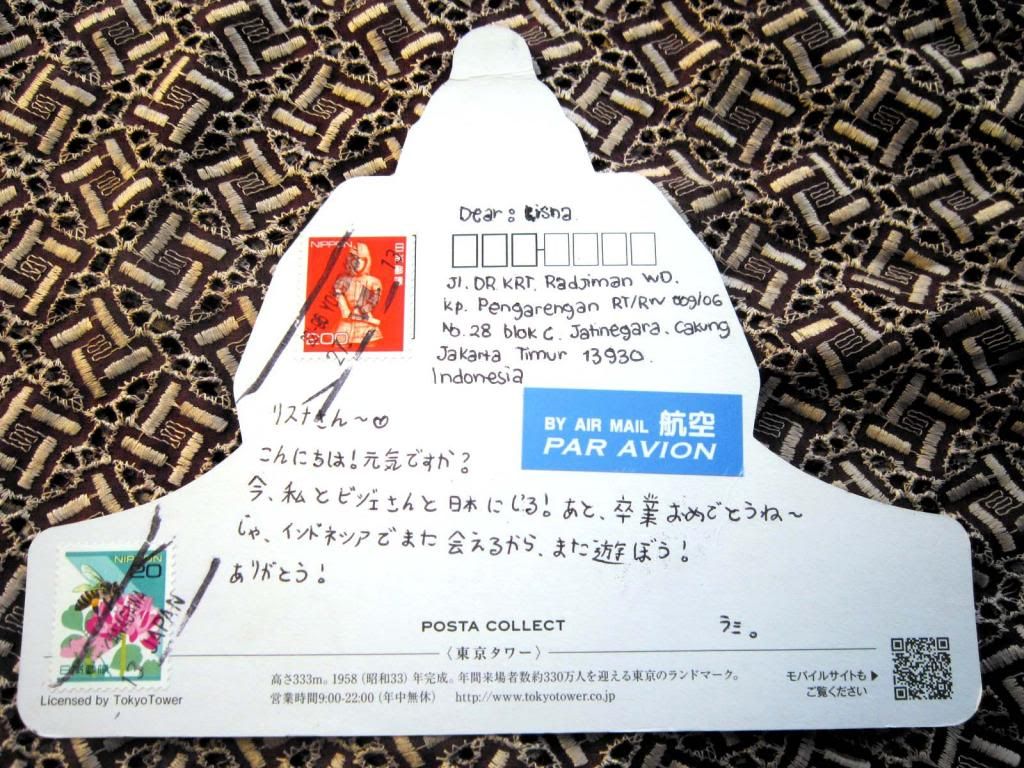 Dear : Risna
NIPPON
日本郵便
200
Jl. DR. KRT. Radjiman WD.
Kp. Pengarengan RT/RW 009/06
No. 28 blok C. Jatinegara. Cakung
Jakarta Timur 13930.
Indonesia
BY AIR MAIL 航空
PAR AVION
リスナさん〜
こんにちは!元気ですか?
今、私とビジェさんと日本にじる!あと、卒業おめでとうね〜
じゃ、インドネシアでまた会えるから、また遊ぼう!
ありがとう!
NIPPON
20
JAPAN
日本郵便
POSTA COLLECT
ラミ。
〈東京タワー〉
高さ333m。1958(昭和33)年完成。年間来場者数約330万人を迎える東京のランドマーク。
営業時間9:00-22:00(年中無休) http://www.tokyotower.co.jp
モバイルサイトも
ご覧ください
Licensed by TokyoTower